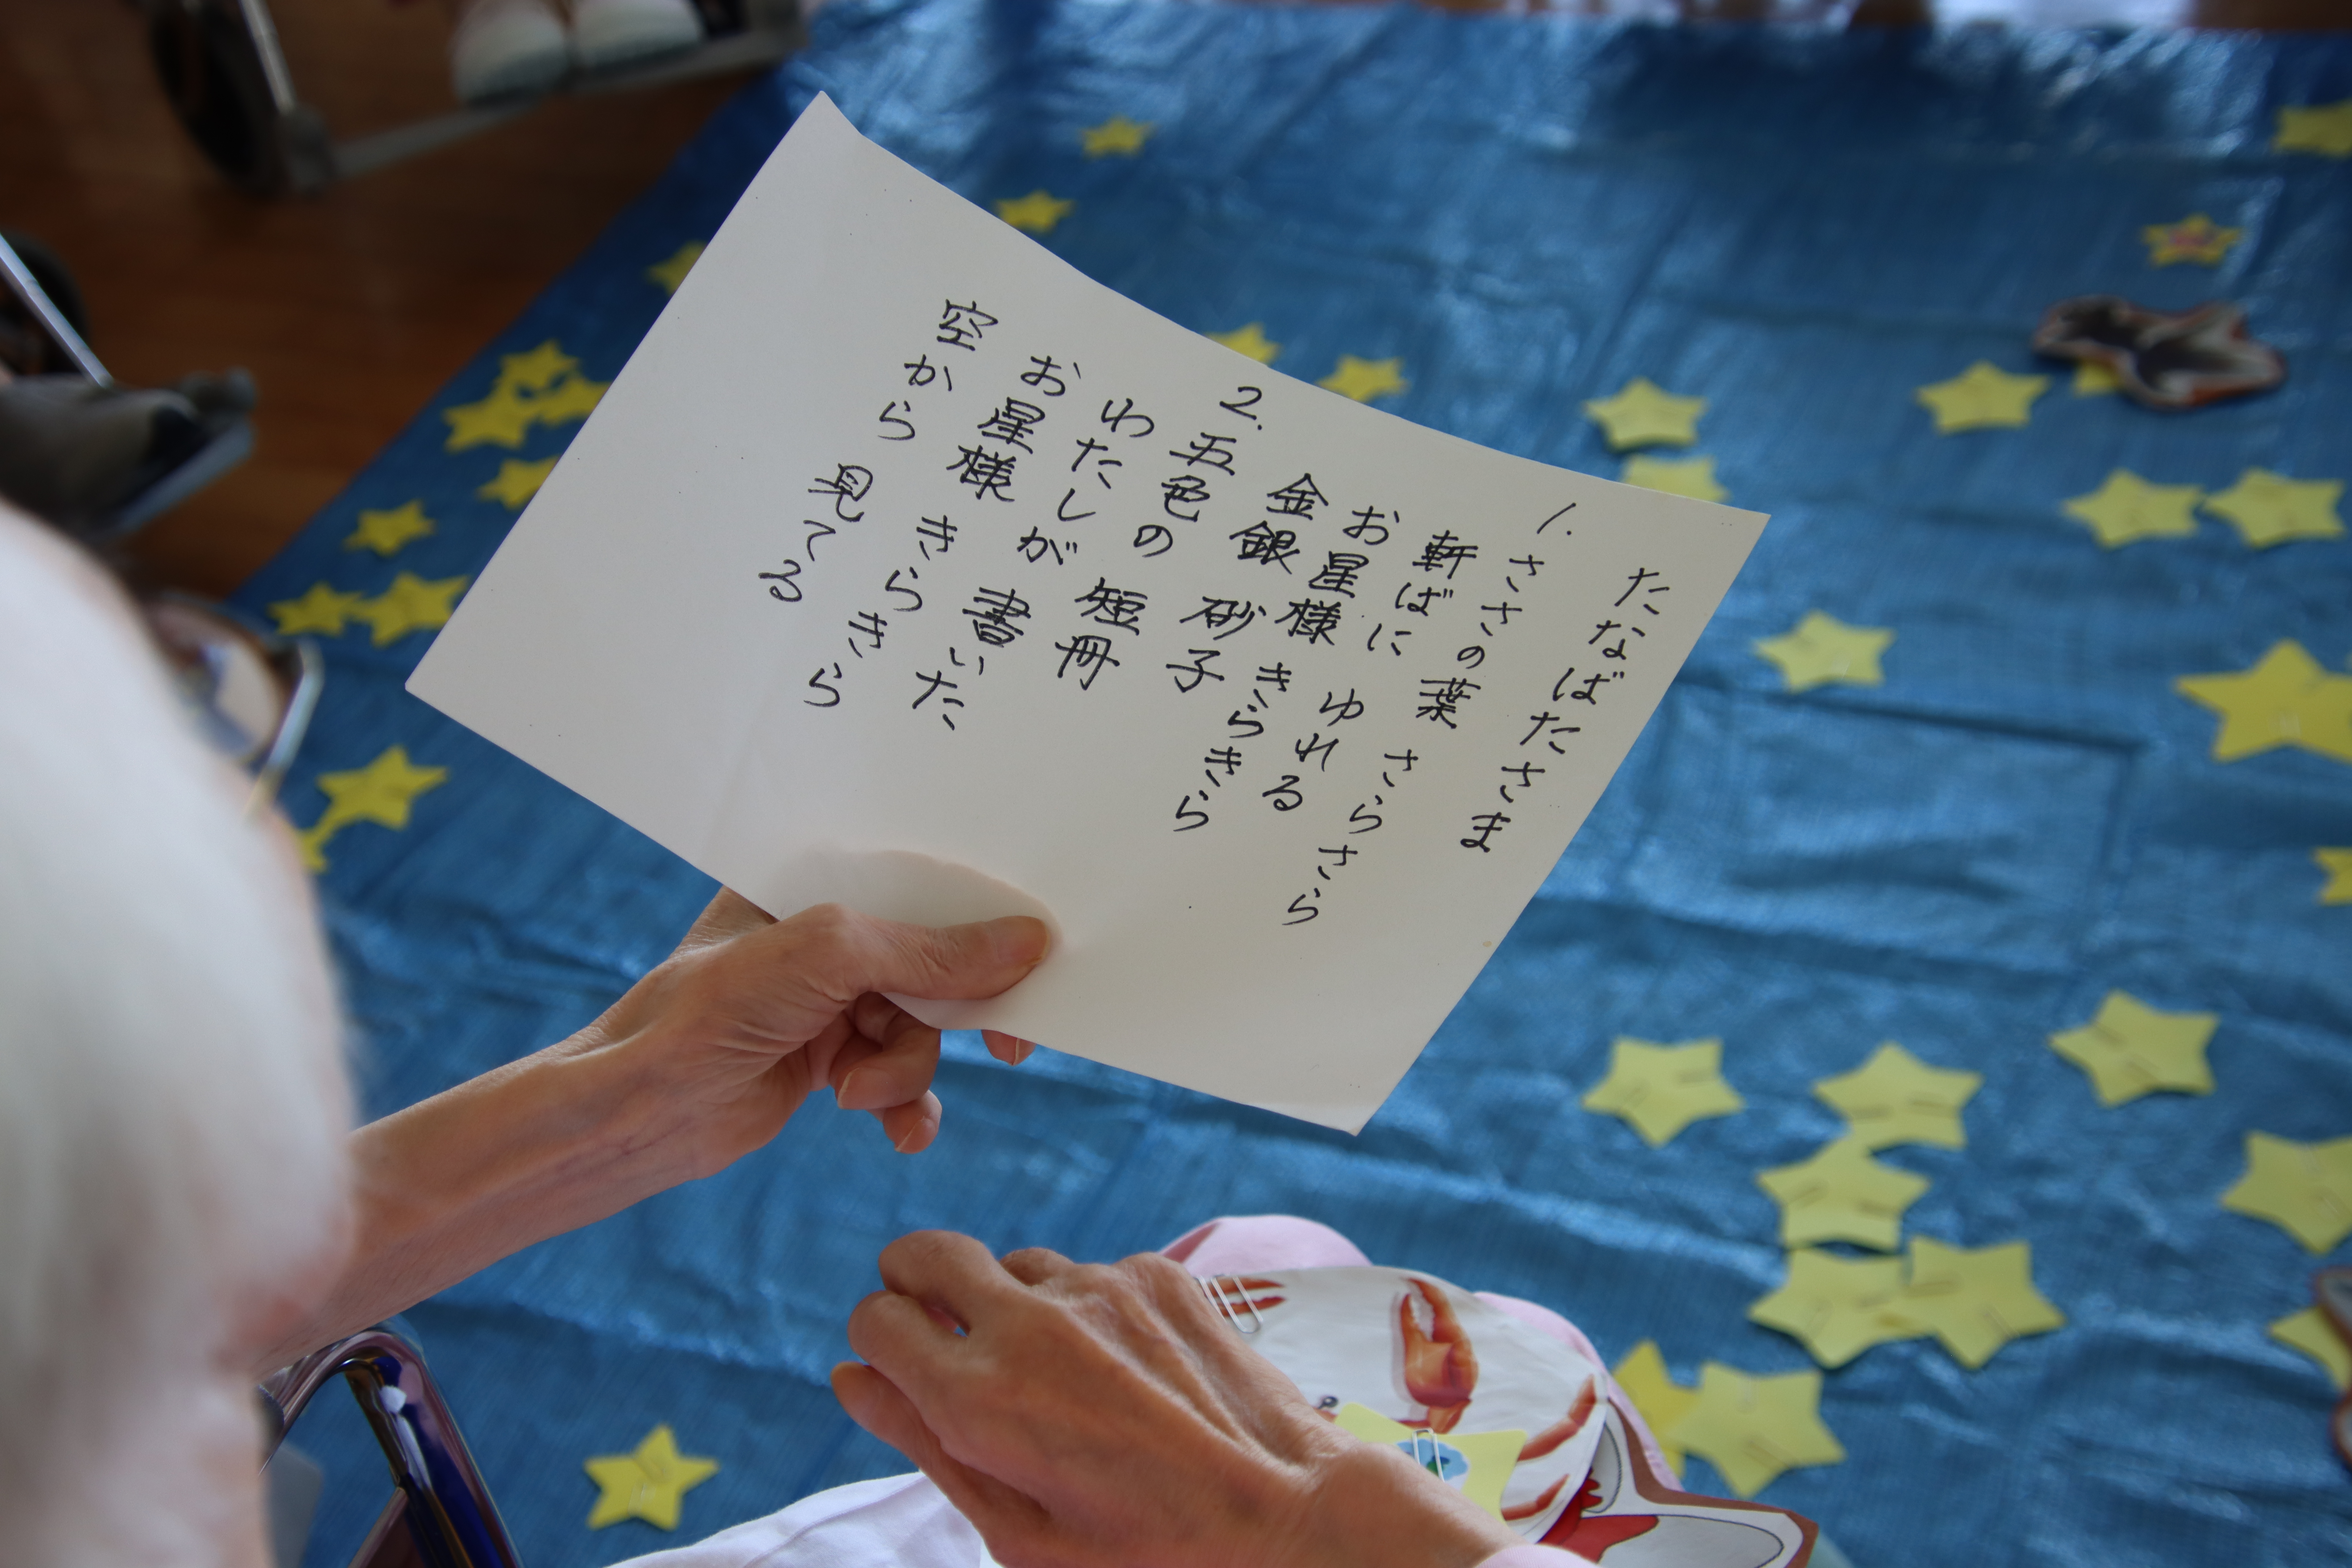 たなばたさま
1. ささの葉 さらさら
軒ばに ゆれる
お星様 きらきら
金銀 砂子
2. 五色の 短冊
わたしが 書いた
お星様 きらきら
空から 見てる